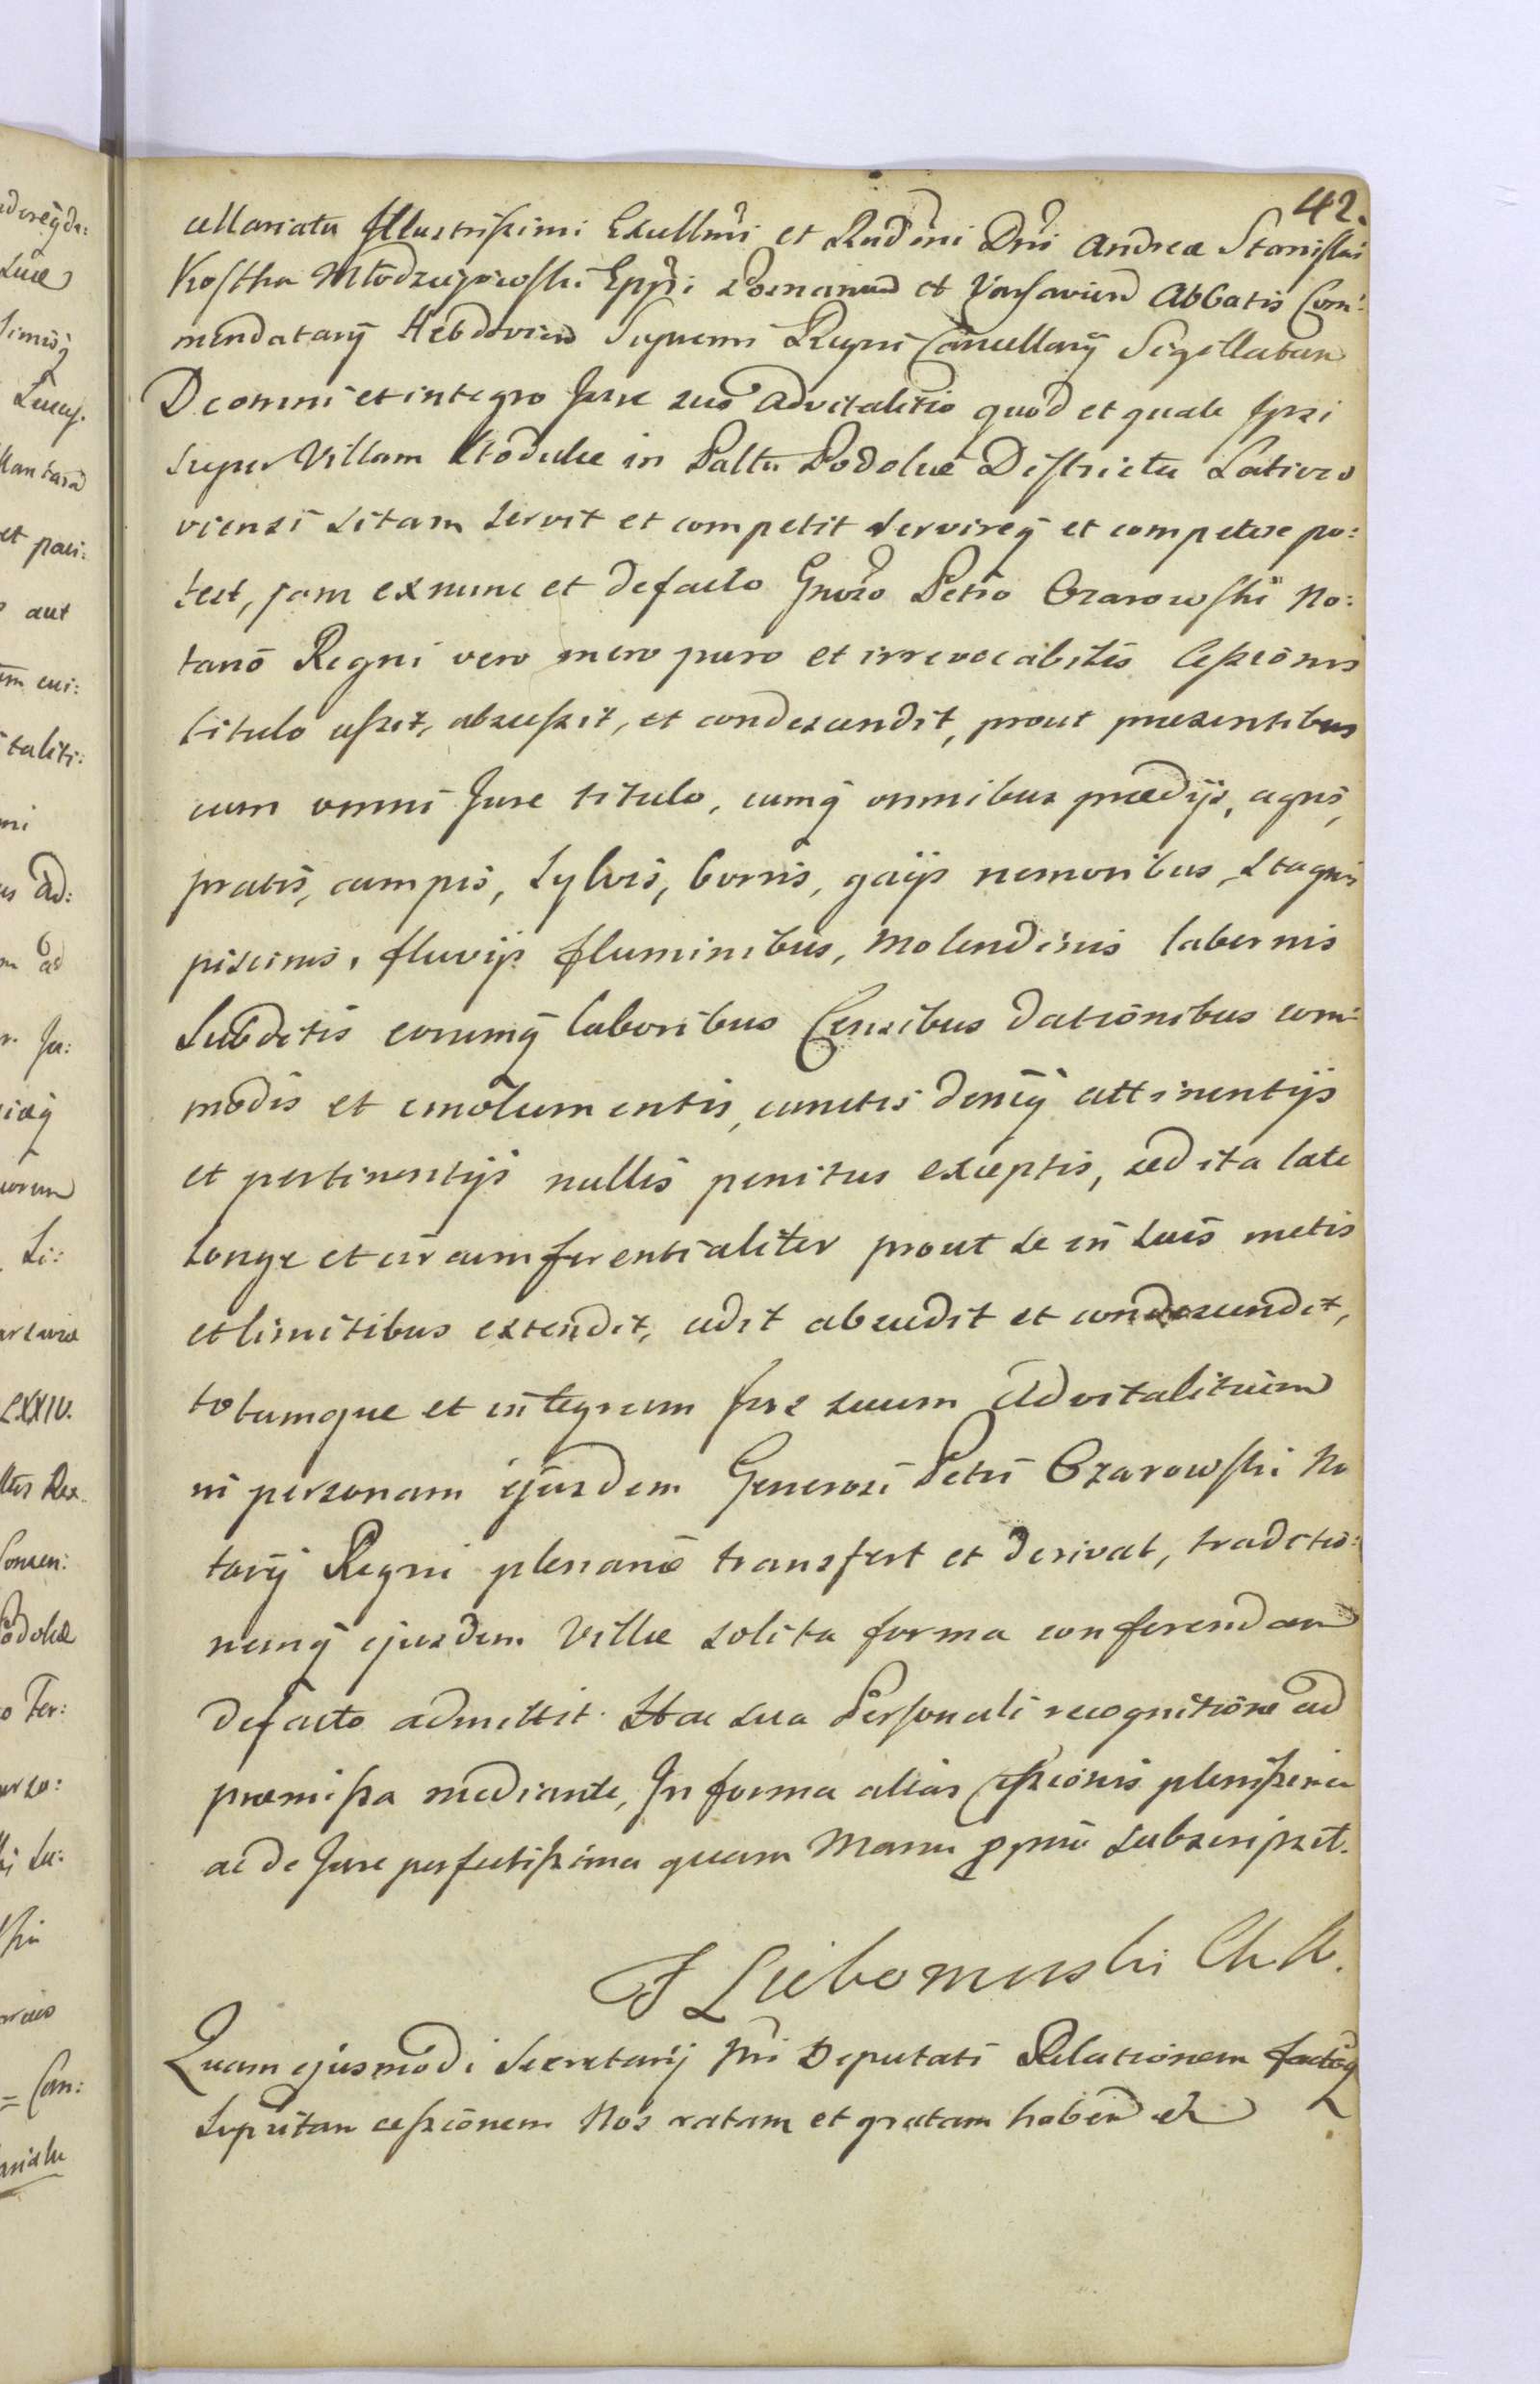 42.
cellariatu Illustrissimi Excellmi et Rndmi Dni Andreæ Stanislai
Kostka Młodziejowski Eppi Posnanien et Varsavien Abbatis Com:
mendatarij Hebdovien Supremi Regni Cancellarij Sigillatum
De omni et integro Jure suo Advitalitio quod et quale Ipsi
super Villam in Palttu Podoliæ Districtu Laticzo
viensi sitam servit et competit servireq et competere po:
test, jam ex nunc et de facto Gnroso Petro Ozarowski No:
tario Regni vero mero puro et irrevocabilis Cessionis
titulo cessit, abscessit, et condescendit, prout præsentibus
cum omni Jure titulo, cumq omnibus prædijs, agris,
pratis, campis, sylvis, borris, gaijs nemoribus, stagnis
piscinis, fluvijs fluminibus, Molendinis tabernis
Subditis eorumq laboribus Censibus dationibus com:
modis et emolumentis, cunctis deniq attinentijs
et pertinentijs nullis penitus exceptis, sed ita late
longe et circumferentialiter prout se in suis metis
et limitibus extendit, cedit abscedit et condescendit,
totumque et integrum Jus suum Advitalitium
in personam ejusdem Generosi Petri Ozarowski No
tarij Regni plenarie transfert et derivat, traditio:
nemq ejusdem Villæ solita forma conferendam
de facto admittit. Hac sua Personali recognitione ad
præmissa mediante, In forma alias Cessionis plenissima
ac de Jure perfectissima quam Manu ppria subscripsit.
Lubomirski
Quam ejusmodi Secretarij Nri Deputati Relationem factaq
suprātam cessionem Nos ratam et gratam haben
ndoreyda:
Lucæ
Lucæ.
llantara
et paci:
aut
taliti:
ni
us Ad:
m ad
r. Ju:
Li:
LXXIV.
ltus Rex.
Consen:
odoliæ
o Ter:
Su:
Can:
ariatu